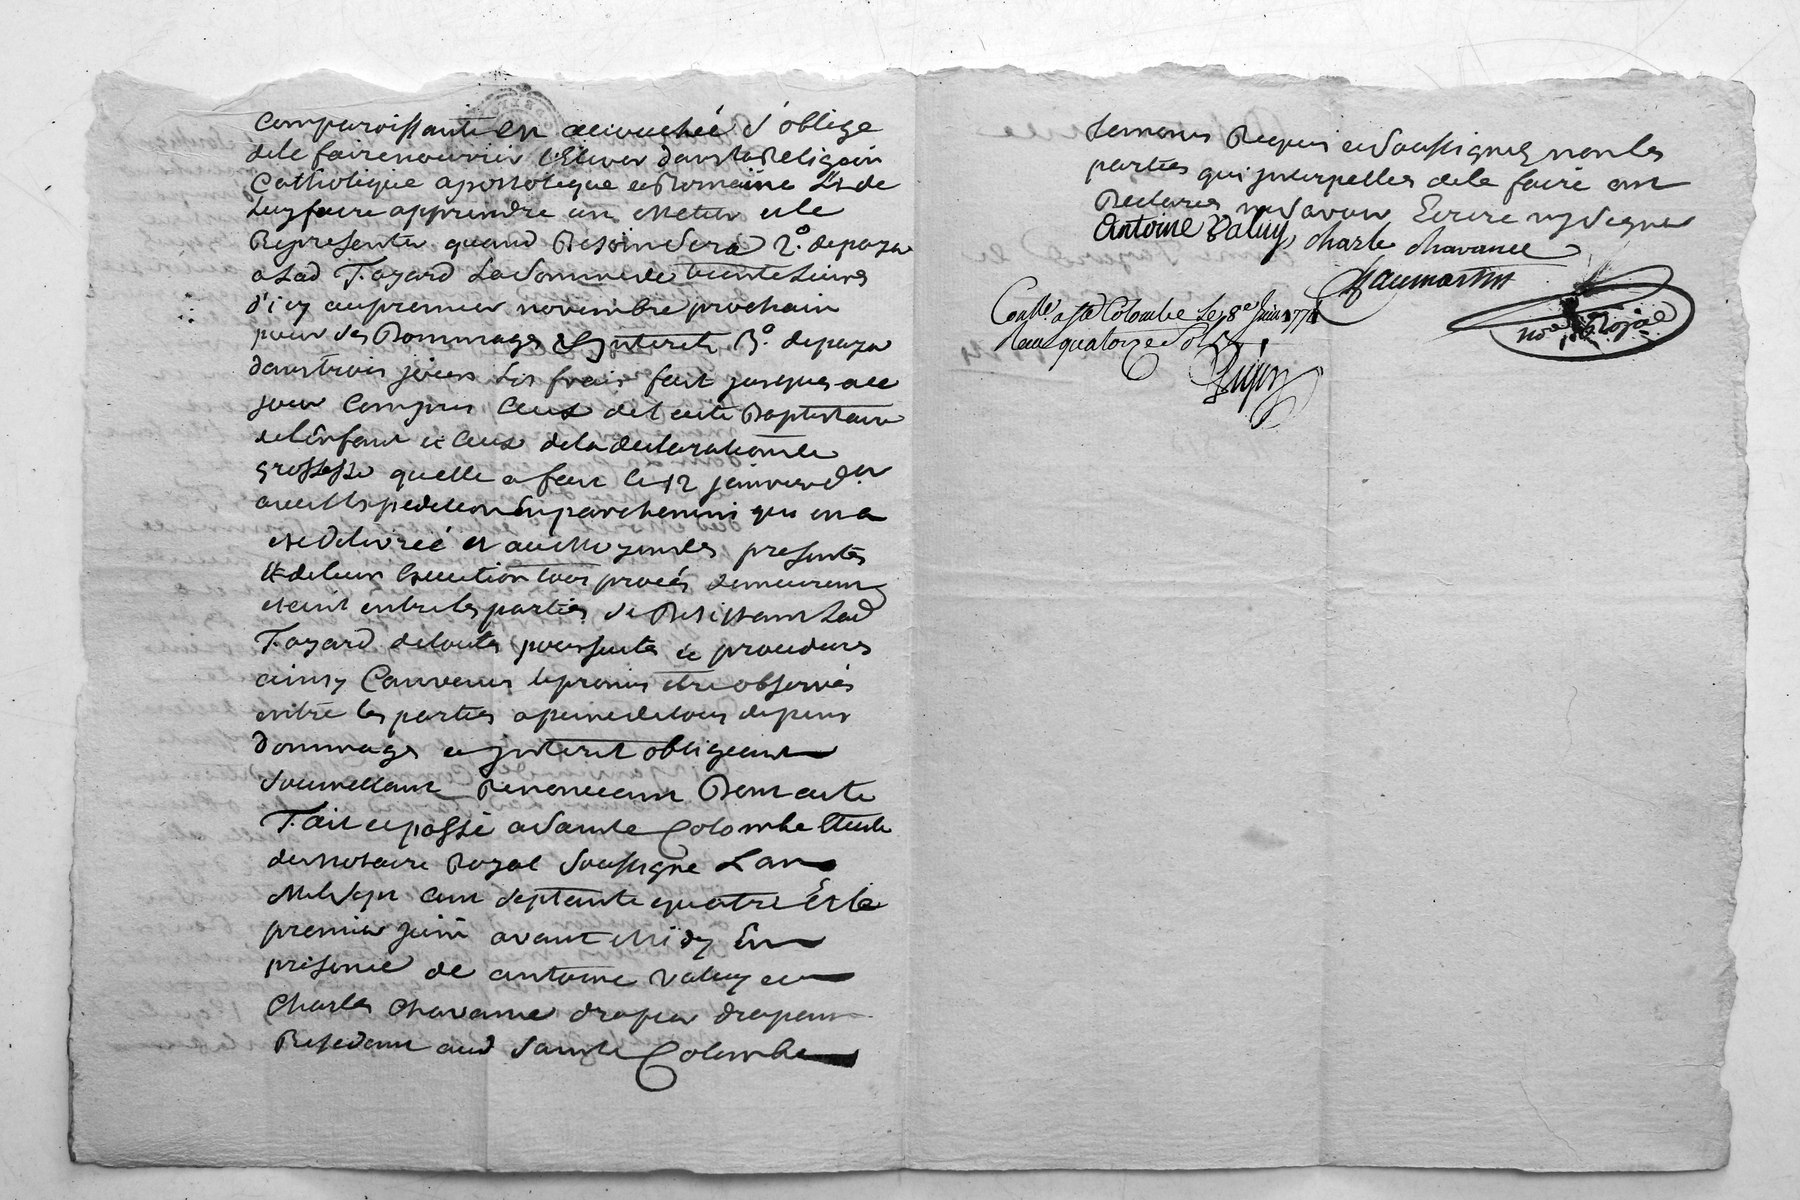 comparoissante en accouchée s'oblige
dele faire nourrir l'Elever dans la Religion
Catholique apostolique et Romaine Et de
luy faire apprendre un Metier et le
Representer quand Besoin sera 2.º de payer
a lad Fayard la somme de trente livres
d'icy au premier novembre prochain
pour ses Dommages & Interets 3.º de payer
dans trois jours les frais fait jusques a ce
jour compris Ceux de l'acte Baptistaire
de l'Enfant et Ceux de la declaration de
grossesse quelle a fait le 12 janvier d.er
avec l'Expedition En parchemin qui en a
ete Delivrée et au moyen des presentes
Et de leur Execution tous procés demeurent
eteint entre les parties se Desistant lad
Fayard de toutes poursuites et procedures
ainsy Convenus et promis etre observés
entre les parties a peine de tous depens
dommages et interest obligeant
soumettant Renonceant Dont acte
Fait et passé a Sainte Colombe Etude
du Notaire Royal soussigné L'an
Mil sept cent septante quatre Et le
premier juin avant Midy En
presence de antoine Valuy et
Charles Chavanne drapier drapant
Residant aud Sainte Colombe
temoins Requis et soussignés non les
parties qui interpellés de le faire ont
Declarés ne savoir Ecrire ny signer
Antoine Valuy charle chavance
Con.lé a S.te Colombe le 8.e Juin 1774
Reçu quatorze sols
no.re Royal